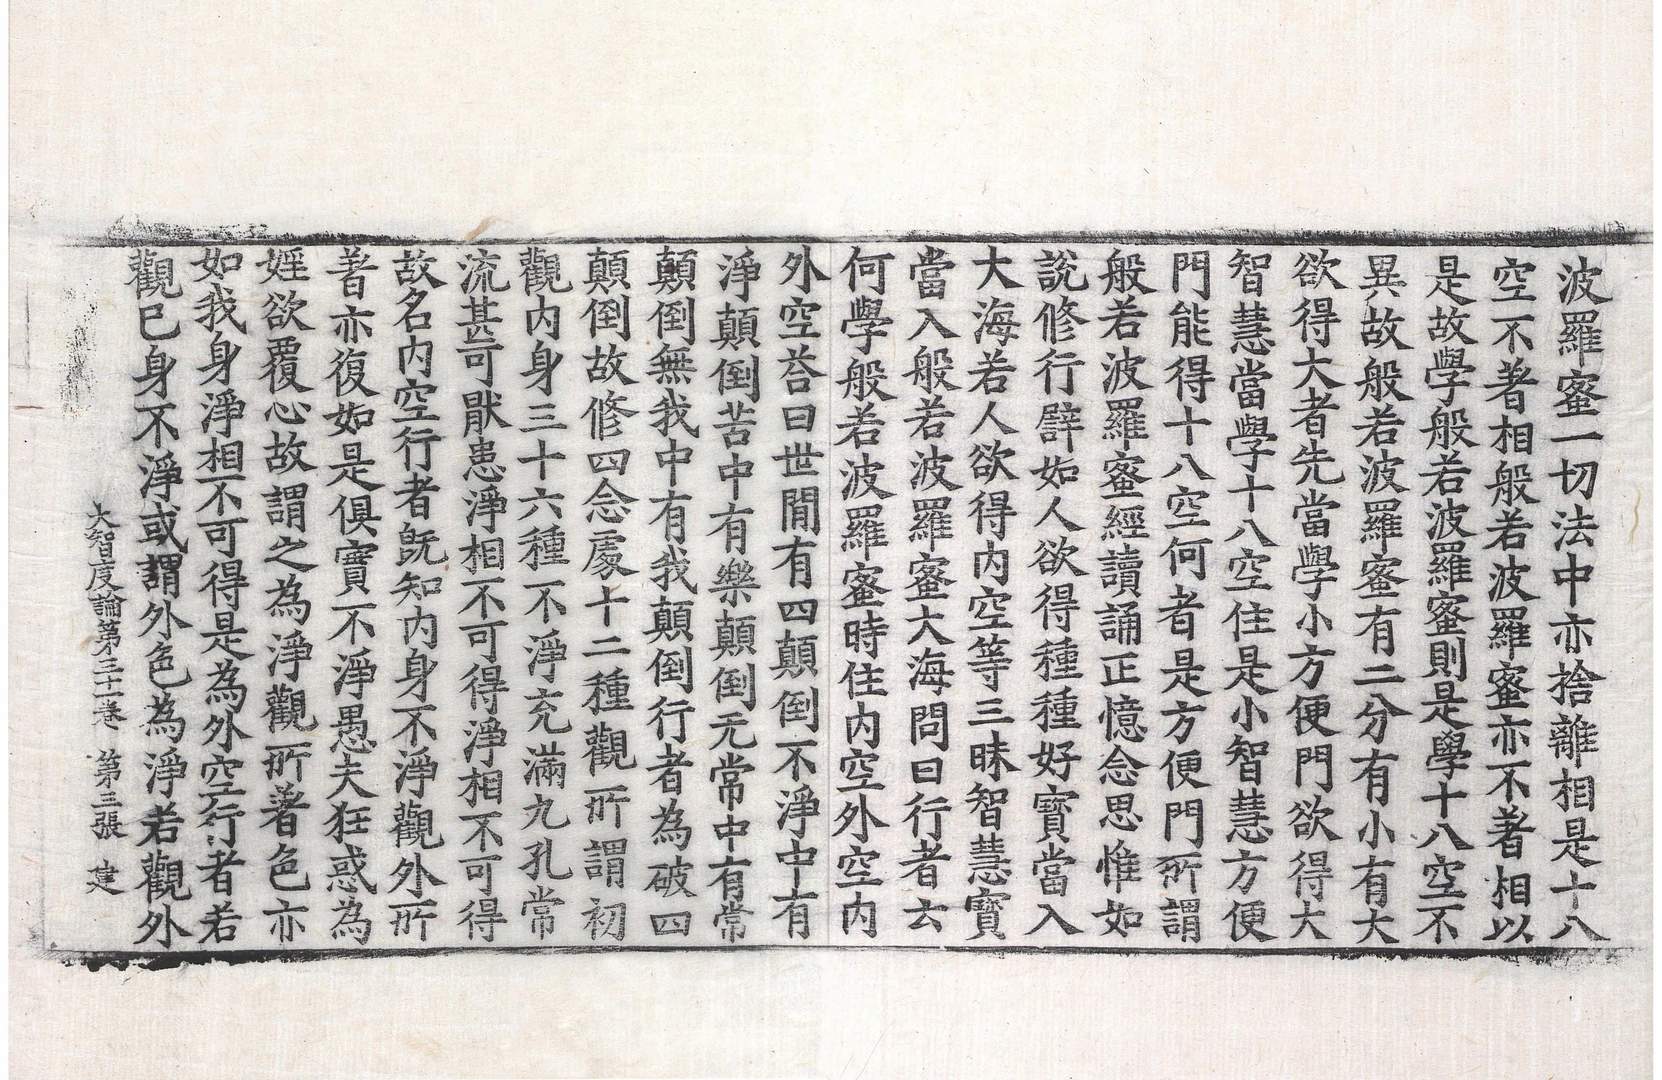 波羅蜜一切法中亦捨離相是十八
空不著相般若波羅蜜亦不著相以
是故學般若波羅蜜則是學十八空不
異故般若波羅蜜有二分有小有大
欲得大者先當學小方便門欲得大
智慧當學十八空住是小智慧方便
門能得十八空何者是方便門所謂
般若波羅蜜經讀誦正憶念思惟如
說修行譬如人欲得種種好寶當入
大海若人欲得內空等三昧智慧寶
當入般若波羅蜜大海問曰行者云
何學般若波羅蜜時住內空外空內
外空荅曰世閒有四顚倒不淨中有
淨顚倒苦中有樂顚倒无常中有常
顚倒無我中有我顚倒行者為破四
顚倒故修四念處十二種觀所謂初
觀內身三十六種不淨充滿九孔常
流甚可猒患淨相不可得淨相不可得
故名內空行者旣知內身不淨觀外所
著亦復如是俱實不淨愚夫狂惑為
婬欲覆心故謂之為淨觀所著色亦
如我身淨相不可得是為外空行者若
觀己身不淨或謂外色為淨若觀外
大智度論第三十一卷 第三張 建